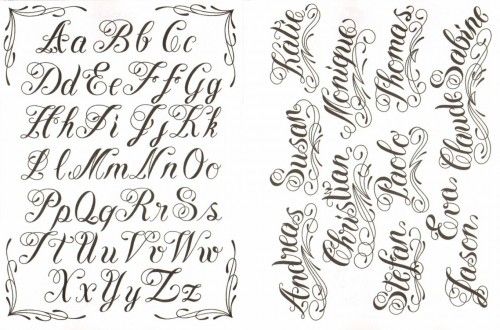 Aa Bb Cc
Dd Ee Ff Gg
Hh Ii Jj Kk
Ll Mm Nn Oo
Pp Qq Rr Ss
Tt Uu Vv Ww
Xx Yy Zz
Andreas Susan Katie
Christian Monique
Stefan Paolo Thomas
Eva Claude Sabine
Jason